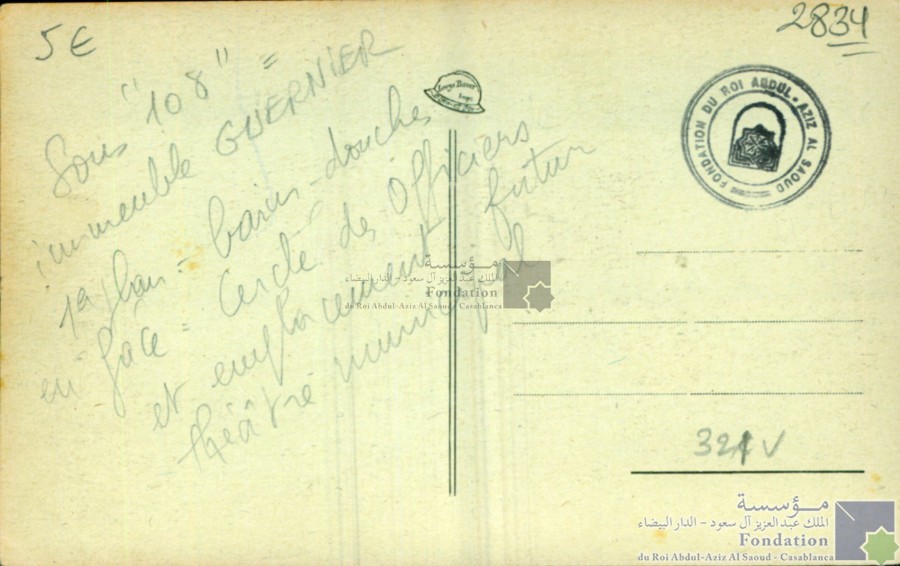 5€
2834
Sous "108" =
immeuble GUERNIER
1er plan = bains-douches
en face = Cercle des Officiers
et emplacement futur
théâtre municipal
FONDATION DU ROI ABDUL-AZIZ AL SAOUD
مؤسسة
الملك عبد العزيز آل سعود - الدار البيضاء
Fondation
du Roi Abdul-Aziz Al Saoud - Casablanca
321 V
مؤسسة
الملك عبد العزيز آل سعود - الدار البيضاء
Fondation
du Roi Abdul-Aziz Al Saoud - Casablanca